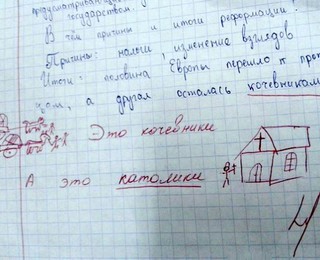 предусматривал
государством.
В чём причины и итоги реформации?
Причины: налоги, изменение взглядов
Итоги: половина Европы перешло к прот
цом, а другая осталась кочевникам
Это кочевники
А это католики
4